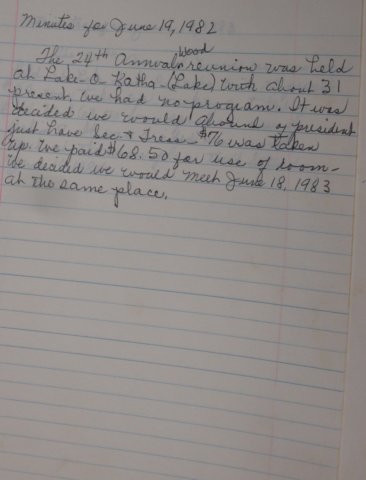 Minutes for June 19, 1982
The 24th Annual Wood reunion was held
at Lake-O-Katha-(Lake) with about 31
present, we had no program. It was
decided we would of president
just have Sec. & Treas - $76 was taken
up. We paid $68.50 for use of room -
We decided we would meet June 18, 1983
at the same place.